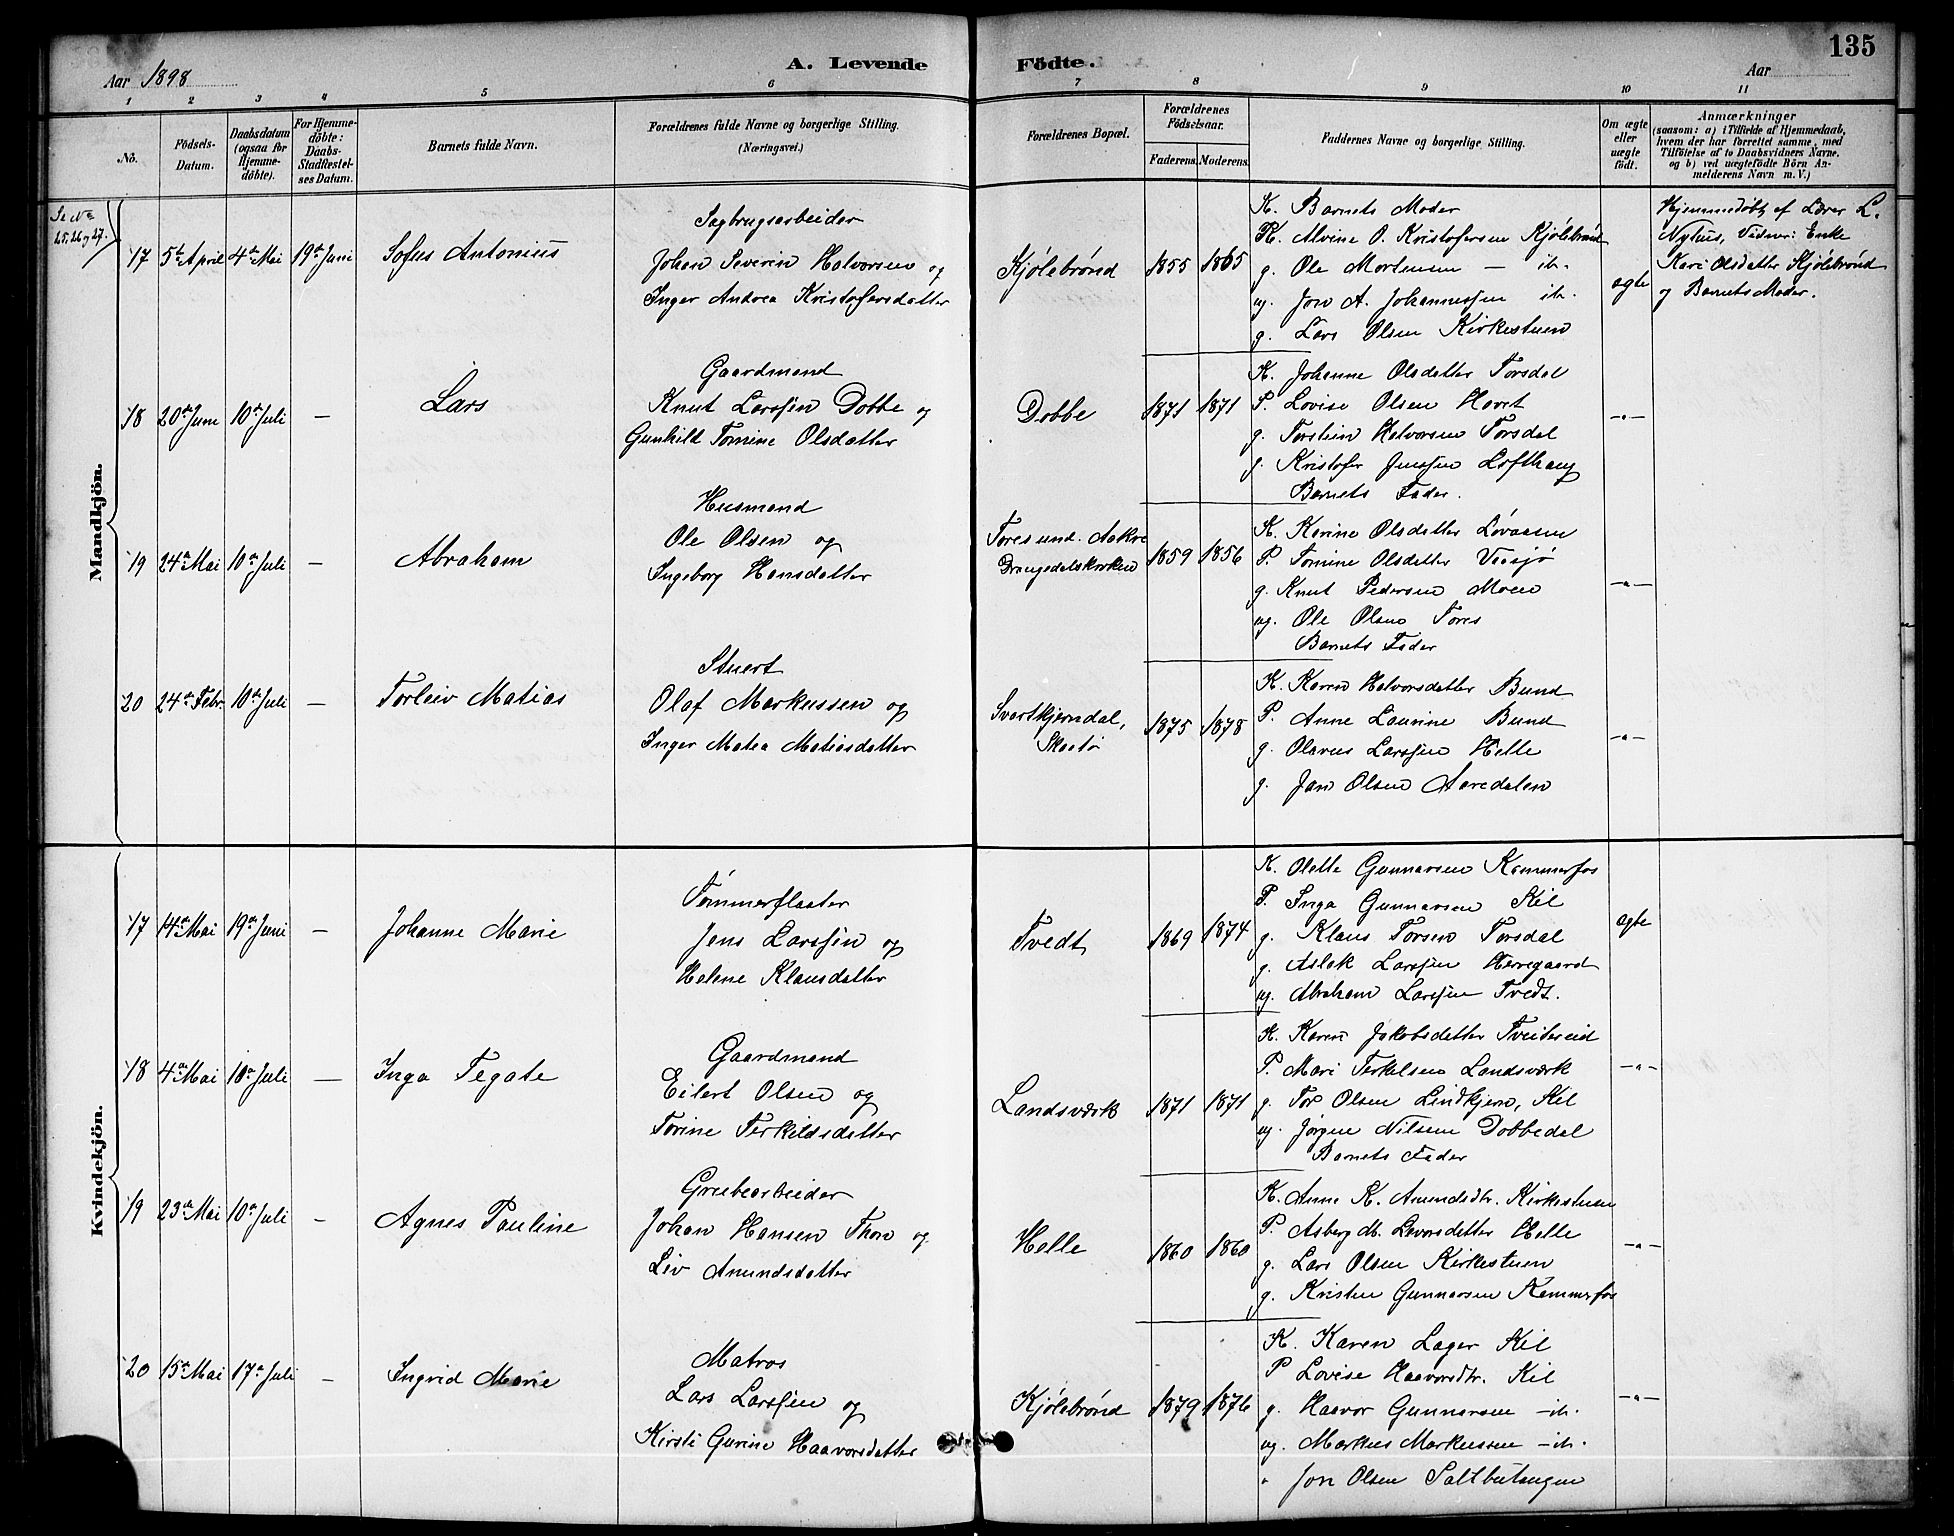 135
Aar 1898
A. Levende
Födte.
Aar
1 2 3 4 5 6 7 8 9 10 11
No.
Födsels-Datum.
Daabsdatum (ogsaa for Hjemme-döbte).
For Hjemme-döbte: Daabs-Stadfæstel-ses Datum.
Barnets fulde Navn.
Forældrenes fulde Navne og borgerlige Stilling.
(Næringsvei.)
Forældrenes Bopæl.
Forældrenes Födselsaar.
Faderens. Moderens.
Faddernes Navne og borgerlige Stilling.
Om ægte eller uægte födt.
Anmærkninger
(saasom: a) i Tilfælde af Hjemmedaab,
hvem der har forrettet samme, med
Tilföielse af to Daabsvidners Navne,
og b) ved uægtefödte Börn An-
melderens Navn m. V.)
Mandkjön.
Se No
25, 26 og 27.
17 5te April 4de Mai 19de Juni Sofus Antonius
Sagbrugsarbeider
Johan Severin Halvorsen og
Inger Andrea Kristofersdatter
Kjølebrønd 1855 1865
K. Barnets Moder
K. Alvine O. Kristofersen Kjølebrønd
g. Ole Mortensen — ib.
ug. Jon A. Johannessen ib.
g. Lars Olsen Kirkestuen
ægte
Hjemmedøbt af Lærer L.
Nylius, Vidner: Enke
Kari Olsdatter Kjølebrønd
og Barnets Moder.
18 20de Juni 10de Juli — Lars
Gaardmand
Knut Larssen Dobbe og
Gunhild Tomine Olsdatter
Dobbe 1871 1871
K. Johanne Olsdatter Torsdal
P. Lovise Olsen Havet
g. Torstein Halvorsen Torsdal
g. Kristofer Jenssen Lofthaug
Barnets Fader.
—"—
19 24de Mai 10de Juli — Abraham
Husmand
Ole Olsen og
Ingeborg Hansdatter
Tores und. Aakre
Drangedalskroken 1859 1856
K. Karine Olsdatter Løvaasen
P. Tomine Olsdatter Vaasjø
g. Knut Pedersen Moen
ug. Ole Olsen Tores
Barnets Fader
—"—
20 24de Febr. 10de Juli — Torleiv Matias
Stuert
Olaf Markussen og
Inger Matea Matiasdatter
Svartkjerndal,
Skaatø 1875 1878
K. Karen Halvorsdatter Bund
P. Anne Laurine Bund
g. Olavus Larssen Helle
g. Jan Olsen Aaredalen
—"—
Kvindekjön.
17 14de Mai 19de Juni — Johanne Marie
Tømmerflaater
Jens Larssen og
Helene Klausdatter
Tvedt 1869 1874
K. Olette Gunnarsen Kammerfos
P. Inga Gunnarsen Kil
g. Klaus Torsen Torsdal
g. Aslak Larssen Herregaard
ug. Abraham Larssen Tvedt.
ægte
18 4de Mai 10de Juli — Inga Tegate
Gaardmand
Eilert Olsen og
Torine Terkildsdatter
Landsværk 1871 1871
K. Karen Jakobsdatter Tveitereid
P. Mari Terkelsen Landsværk
g. Tor Olsen Lindkjern, Kil
ug. Jørgen Nilsen Dobbedal
Barnets Fader
—"—
19 23de Mai 10de Juli — Agnes Pauline
Grubearbeider
Johan Hansen Thon og
Liv Amundsdatter
Helle 1860 1860
K. Anne K. Amundsdtr. Kirkestuen
P. Asberg M. Levorsdatter Helle
g. Lars Olsen Kirkestuen
g. Kristen Gunnarsen Kammerfos
—"—
20 15de Mai 17de Juli — Ingrid Marie
Matros
Lars Larssen og
Kirsti Gurine Haavorsdatter
Kjølebrønd 1879 1876
K. Karen Lager Kil
P. Lovise Haavorsdtr. Kil
g. Haavor Gunnarsen — ib.
ug. Markus Markussen — ib.
" Jon Olsen Saltbutangen
—"—